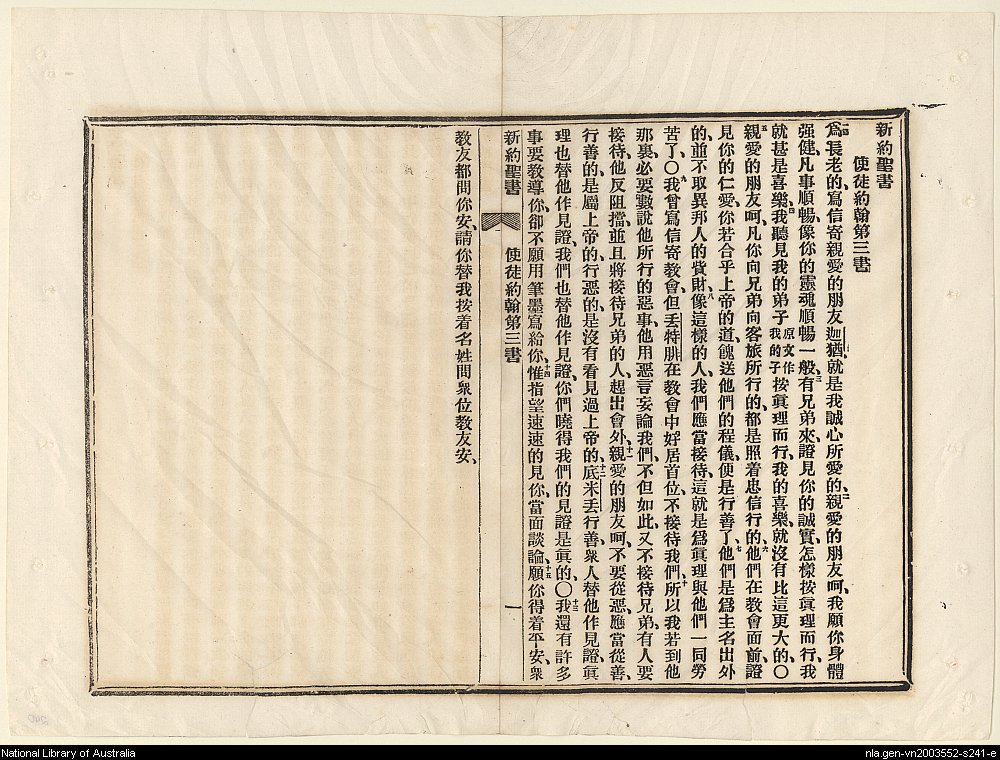 新約聖書
使徒約翰第三書
爲長老的、寫信寄親愛的朋友迦猶、就是我誠心所愛的、二親愛的朋友呵、我願你身體
强健、凡事順暢、像你的靈魂順暢一般、三有兄弟來、證見你的誠實、怎樣按眞理而行、我
就甚是喜樂、四我聽見我的弟子原文作我的子按眞理而行、我的喜樂、就沒有比這更大的、〇
五親愛的朋友呵、凡你向兄弟向客旅所行的、都是照着忠信行的、六他們在教會面前、證
見你的仁愛、你若合乎上帝的道、餽送他們的程儀、便是行善了、七他們是爲主名出外
的、並不取異邦人的貲財、八像這樣的人、我們應當接待、這就是爲眞理與他們一同勞
苦了、〇九我曾寫信寄教會、但丢特腓在教會中好居首位、不接待我們、十所以我若到他
那裏、必要數說他所行的惡事、他用惡言妄論我們、不但如此、又不接待兄弟、有人要
接待、他反阻擋、並且將接待兄弟的人、趕出會外、十一親愛的朋友呵、不要從惡、應當從善、
行善的是屬上帝的、行惡的是沒有看見過上帝的、十二底米丢行善、衆人替他作見證、眞
理也替他作見證、我們也替他作見證、你們曉得我們的見證是眞的、〇十三我還有許多
事要教導你、卻不願用筆墨寫給你、十四惟指望速速的見你、當面談論、十五願你得着平安、衆
新約聖書 使徒約翰第三書 一
教友都問你安、請你替我按着名姓問衆位教友安、
National Library of Australia
nla.gen-vn2003552-s241-e